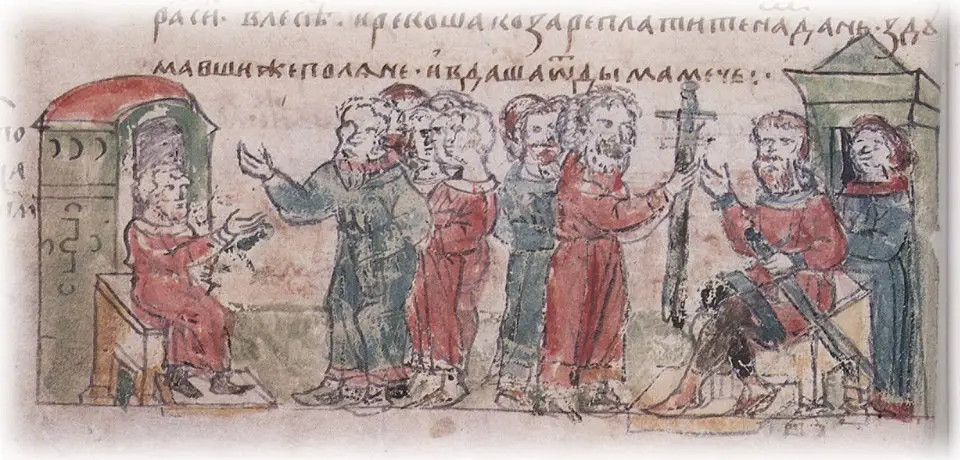 раси· влеснѣ· ирекошакозареплатитенадань· зду
мавшижеполѧне· ивдашаѿдымамечь:·